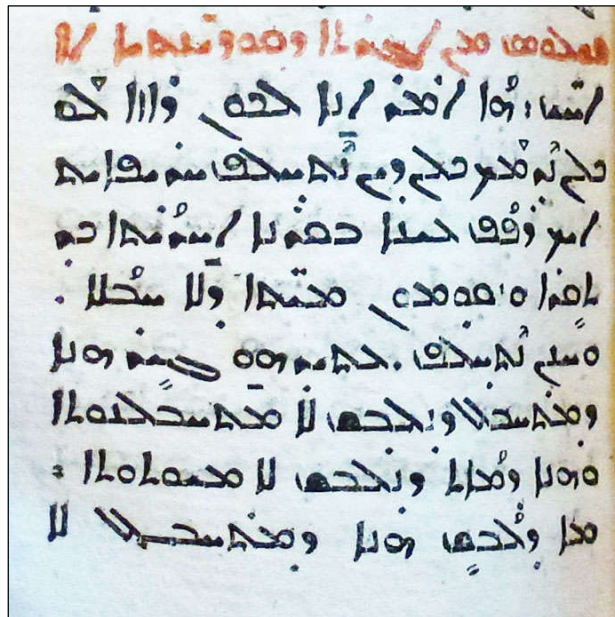 ܦܘܠܘܣ ܡܢ ܐܓܪܬܐ ܕܩܘܪ̈ܢܬܝܐ ܐ
ܐܚ̈ܝ: ܗܐ ܐܡܪ ܐܢܐ ܠܟܘܢ ܪܐܙܐ ܠܘ
ܟܠܢ ܢܕܡܟ ܟܠܢ ܕܝܢ ܢܬܚܠܦ ܚܪܝܦܐܝܬ
ܐܝܟ ܪܦܦ ܥܝܢܐ ܒܩܪܢܐ ܐܚܪܝܬܐ ܟܕ
ܬܩܪܐ ܘܢܩܘܡܘܢ ܡܝ̈ܬܐ ܕܠܐ ܚܒܠܐ .
ܘܚܢܢ ܢܬܚܠܦ . ܥܬܝܕ ܗܘ ܓܝܪ ܗܢܐ
ܕܡܬܚܒܠ ܕܢܠܒܫ ܠܐ ܡܬܚܒܠܢܘܬܐ
ܘܗܢܐ ܕܡܐܬ ܕܢܠܒܫ ܠܐ ܡܝܘܬܘܬܐ :
ܡܐ ܕܠܒܫ ܗܢܐ ܕܡܬܚܒܠ ܠܐ